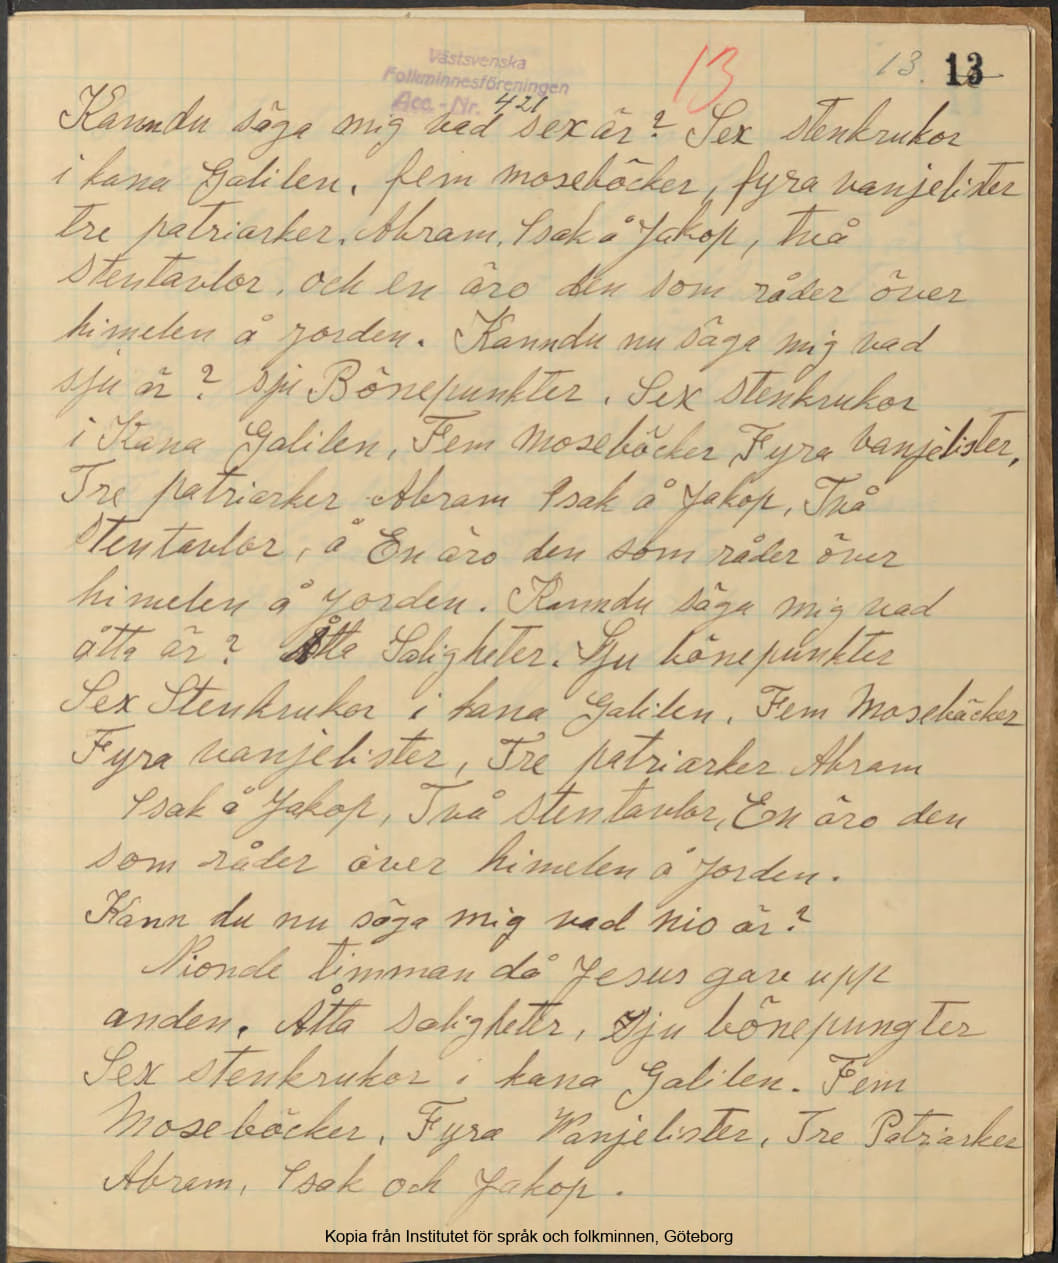 13
13. 13
Västsvenska
Folkminnesföreningen
Acc. - Nr. 421
Kanndu säga mig vad sex är? Sex stenkrukor
i kana Galilen, fem moseböcker, fyra vanjelister
tre patriarker, Abram, Isak å Jakop, två
stentavlor, och en äro den som råder över
himelen å jorden. Kanndu nu säga mig vad
sju är? sju Bönepunkter, Sex stenkrukor
i Kana Galilen, Fem moseböcker Fyra vanjelister,
Tre patriarker Abram Isak å Jakop, Två
stentavlor, å En äro den som råder över
himelen å jorden. Kanndu säga mig vad
åtta är? Åtta Saligheter. Sju bönepunkter
Sex Stenkrukor i kana Galilen, Fem Moseböcker
Fyra vanjelister, Tre patriarker Abram
Isak å Jakop, Två stentavlor, En äro den
som råder över himelen å Jorden.
Kann du nu säga mig vad nio är?
Nionde timman då Jesus gav upp
anden. Åtta saligheter, Sju bönepungter
Sex stenkrukor i kana Galilen. Fem
Moseböcker, Fyra Vanjelister, Tre Patriarker
Abram, Isak och Jakop.
Kopia från Institutet för språk och folkminnen, Göteborg